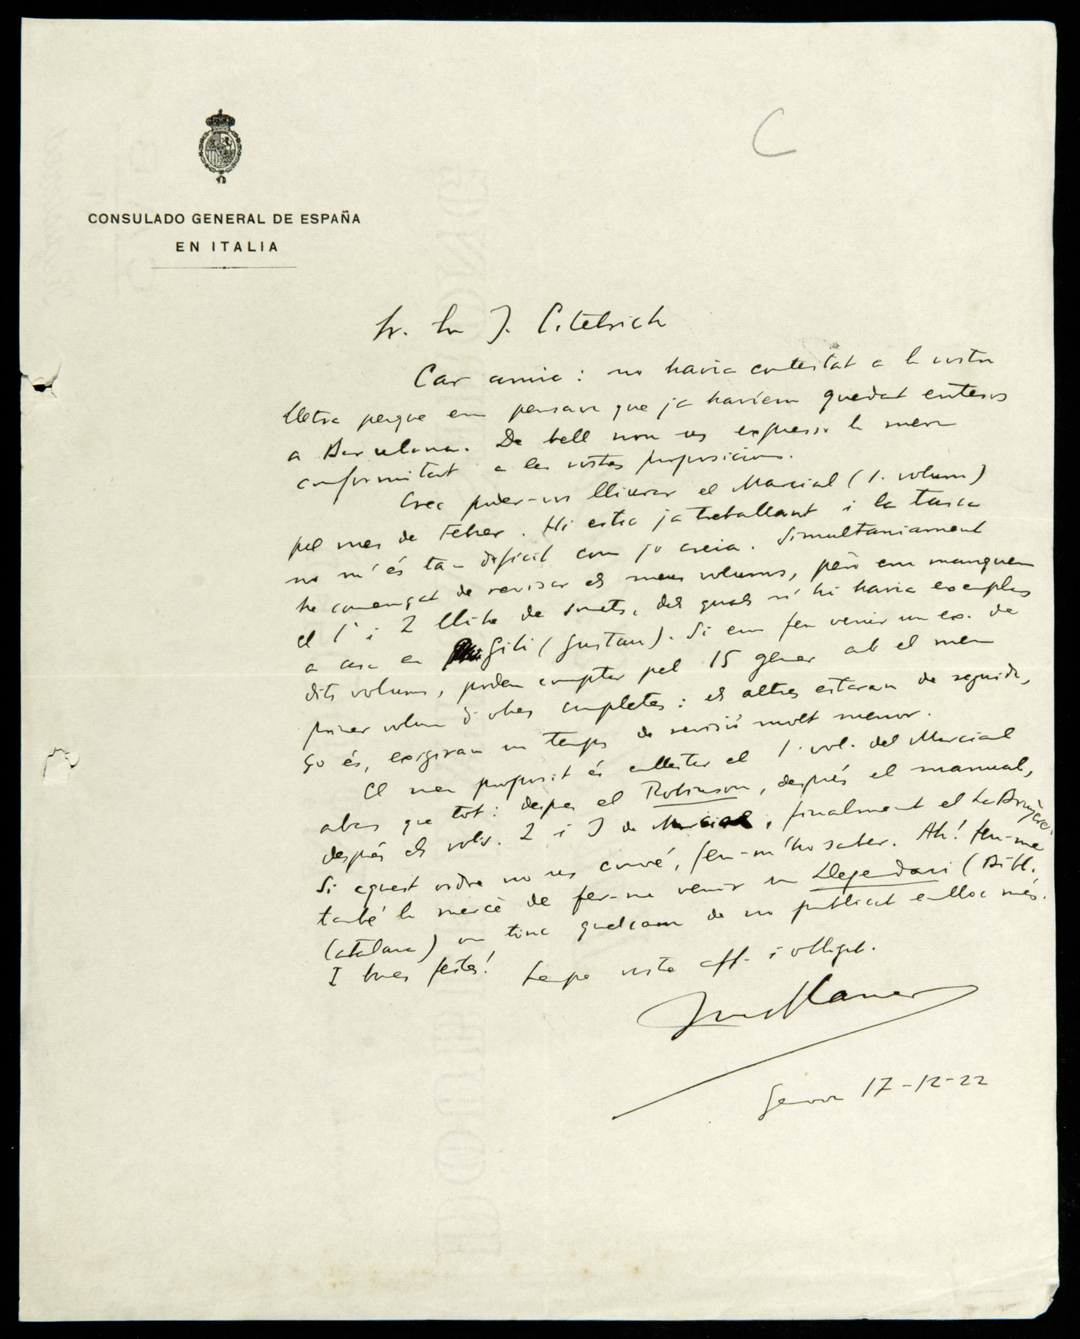 C
CONSULADO GENERAL DE ESPAÑA
EN ITALIA
Sr. En J. Estelrich
Car amic: no havia contestat a la vostra
lletra perque em pensava que ja havíem quedat entesos
a Barcelona. De bell nou us expresso la meva
conformitat a les vostres proposicions.
Crec poder-vos lliurar el Marcial (1. volum)
pel mes de febrer. Hi estic ja treballant i la tasca
no m'és tan difícil com jo creia. Simultaniament
he començat de revisar els meus volums, però em manquen
el 1r i 2 llibre de sonets, dels quals n'hi havia exemplars
a casa en Gili (Gustau). Si em feu venir un ex. de
dits volums, podeu comptar pel 15 gener amb el meu
primer volum d'obres completes: els altres estaran de seguida,
ço és, exigiran un temps de revisió molt menor.
El meu proposit és enllestir el 1. vol. del Marcial
abans que tot: despres el Robinson, després el manual,
després els vols. 2 i 3 de Marcial, finalment el La Bruyère.
Si aquest ordre no us convé, feu-m'ho saber. Ah! feu-me
també la mercè de fer-me venir un Llegendari (Bibl.
Catalana) on tinc quelcom de no publicat enlloc més.
I bones festes! Sempre vostre aff. i obligat.
Josep Carner
Genova 17-12-22